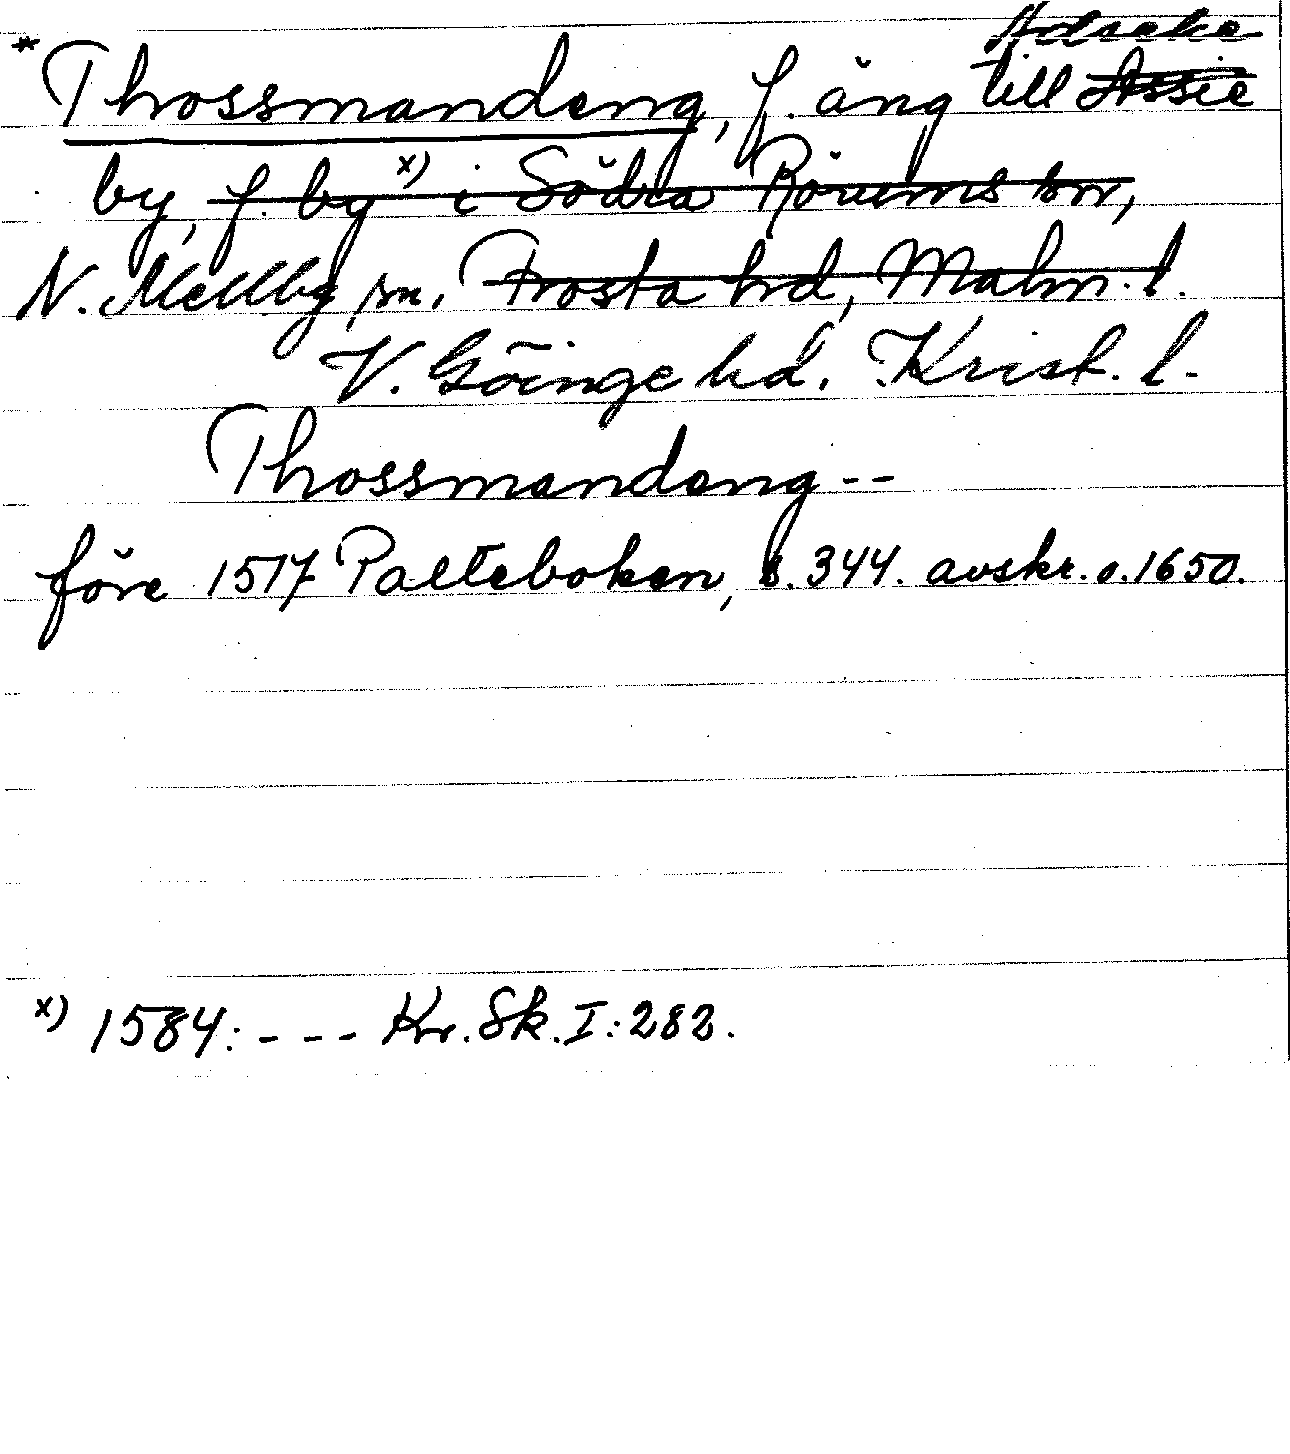 * Thossmandeng, f. äng till Assie
by, f. by x) i Södra Rörums sn,
N. Mellby sn. Frosta hd, Malm. l.
V. Göinge hd. Krist. l.
Thossmandeng --
före 1517 Palteboken, s. 344. avskr. o. 1650.
x) 1584: - - - Kr. Sk. I: 282.